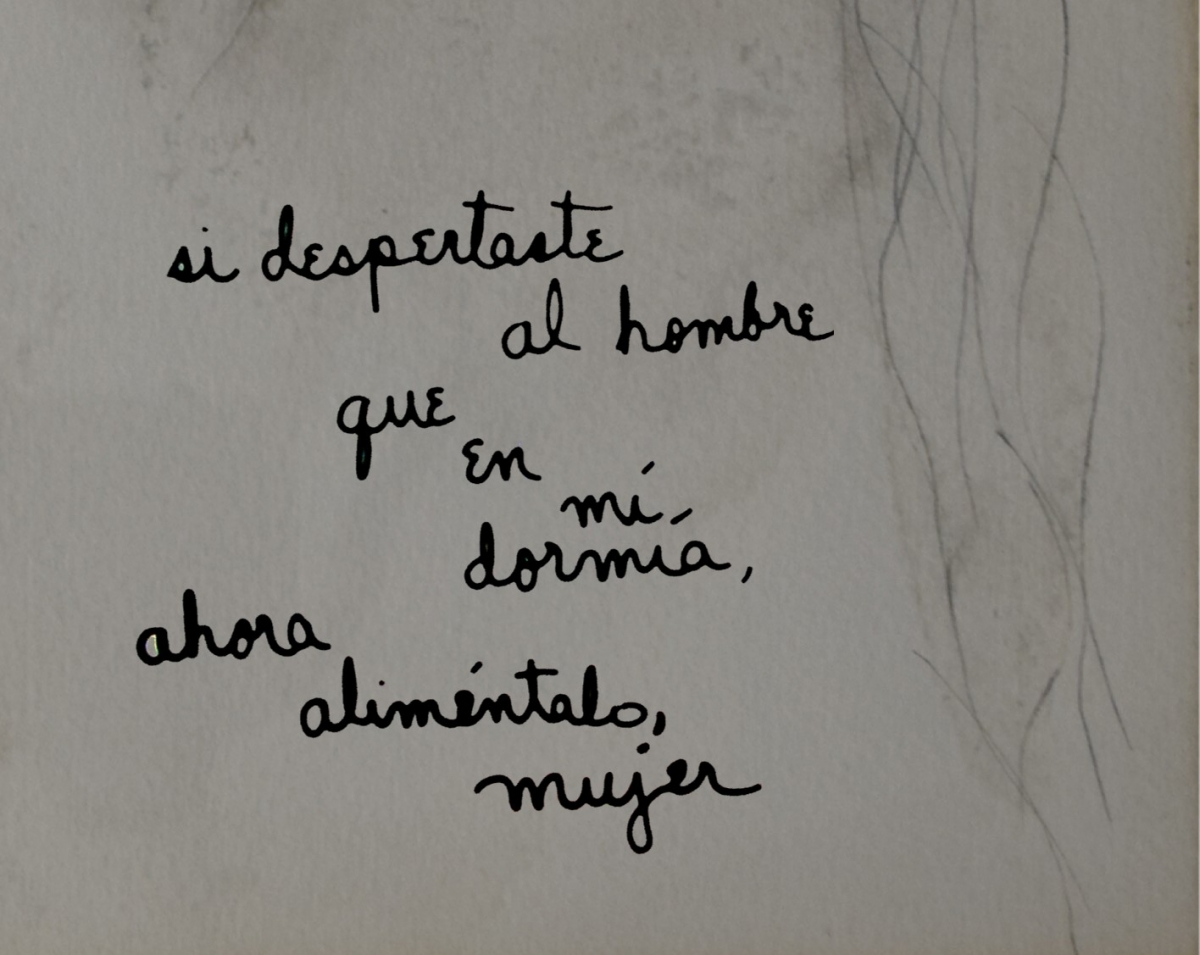 si despertaste
al hombre
que
en
mí
dormía,
ahora
aliméntalo,
mujer